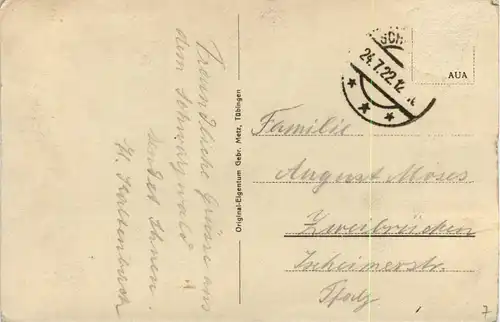 Freundliche Grüsse aus
dem Schwarzwald
sendet Ihnen
H.
Original-Eigentum Gebr. Metz, Tübingen
SCH
24.7.22.12
AUA
Familie
August Moses
Zweibrücken
Pfalz
7